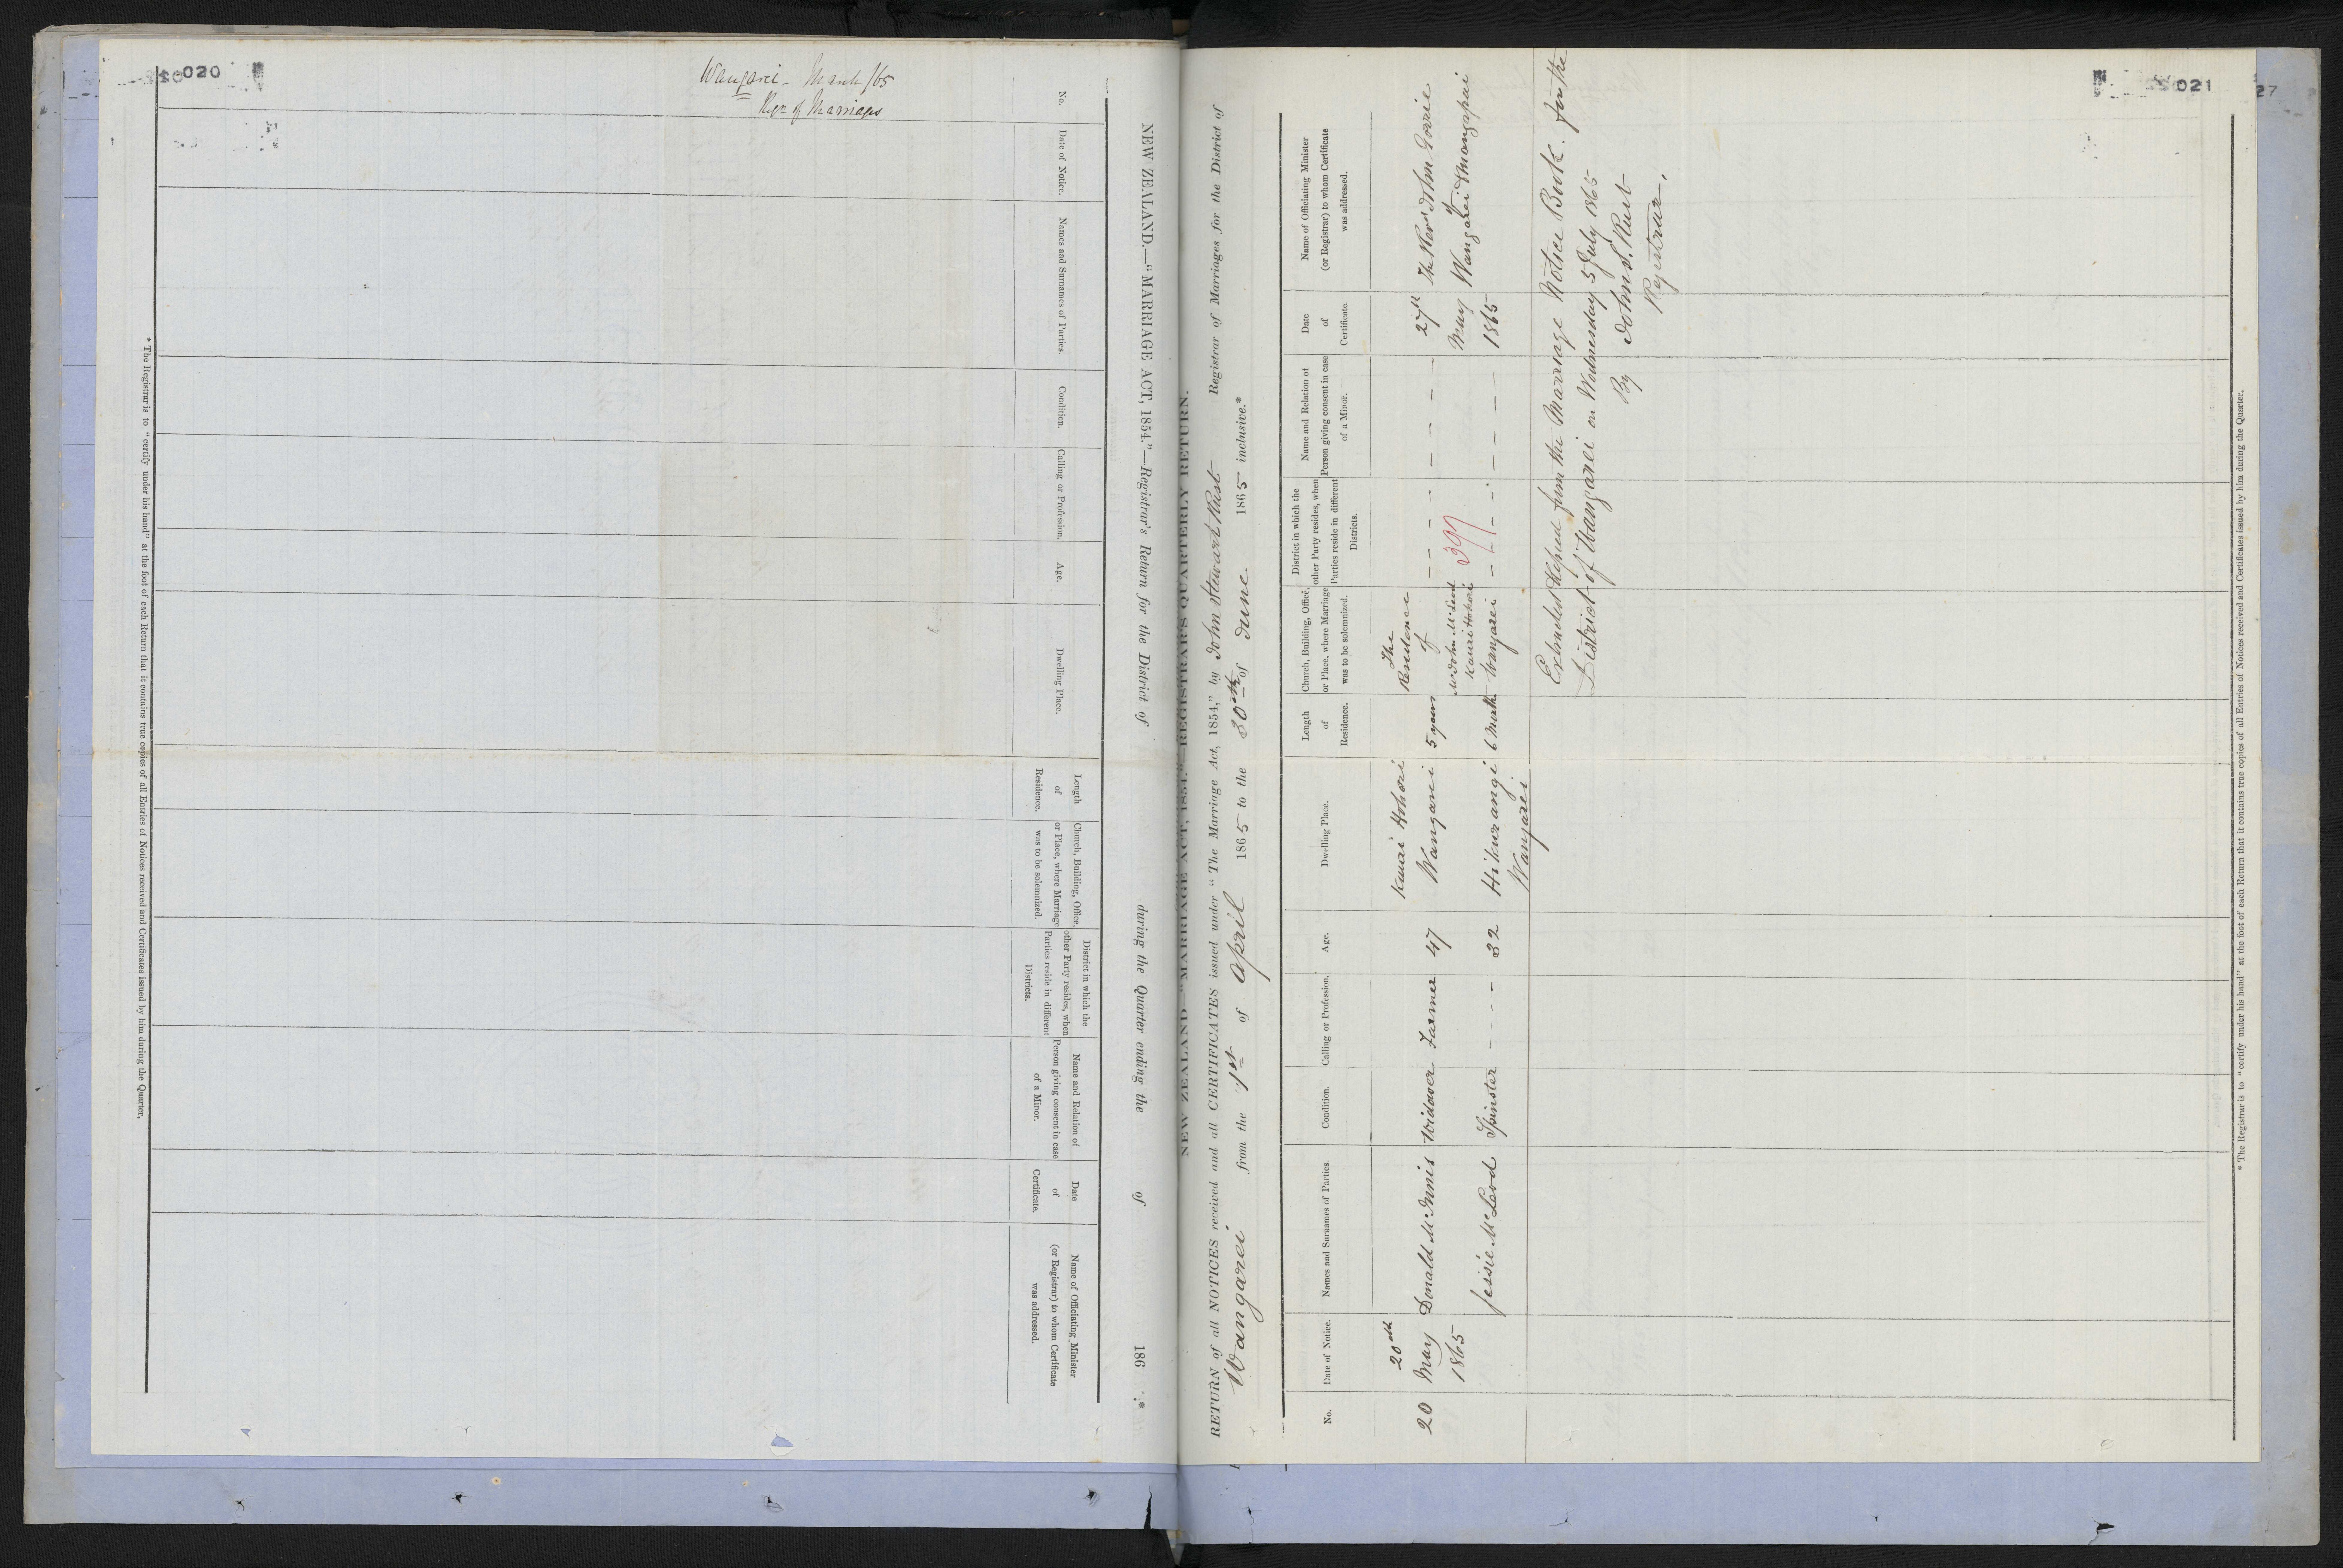 020
Wangarei - March /65
Regr of Marriages
NEW ZEALAND.—"MARRIAGE ACT, 1854."—Registrar's Return for the District of during the Quarter ending the of 186 .*
No.
Date of Notice.
Names and Surnames of Parties
Condition.
Calling or Profession.
Age.
Dwelling Place.
Length
of
Residence.
Church, Building, Office,
or Place, where Marriage
was to be solemnized.
District in which the
other Party resides, when
Parties reside in different
Districts.
Name and Relation of
Person giving consent in case
of a Minor.
Date
of
Certificate.
Name of Officiating Minister
(or Registrar) to whom Certificate
was addressed.
* The Registrar is to "certify under his hand" at the foot of each Return that it contains true copies of all Entries of Notices received and Certificates issued by him during the Quarter.
021
27
NEW ZEALAND—"MARRIAGE ACT, 1854."—REGISTRAR'S QUARTERLY RETURN.
RETURN of all NOTICES received and all CERTIFICATES issued under "The Marriage Act, 1854," by John Stewart Rust Registrar of Marriages for the District of
Wangarei from the 1st of April 1865 to the 30th of June 1865 inclusive.*
No.
Date of Notice.
Names and Surnames of Parties.
Condition.
Calling or Profession.
Age.
Dwelling Place.
Length
of
Residence.
Church, Building, Office,
or Place, where Marriage
was to be solemnized.
District in which the
other Party resides, when
Parties reside in different
Districts.
Name and Relation of
Person giving consent in case
of a Minor.
Date
of
Certificate.
Name of Officiating Minister
(or Registrar) to whom Certificate
was addressed.
20
20th
May
1865
Donald McInnis
Jessie McLeod
Widower
Spinster
Farmer
- - - -
47
32
Kauri Hohori
Wangarei
Hikurangi
Wangarei
5 years
6 Month
The
Residence
of
Mr John McLeod
Kauri Hohori
Wangarei
- - - -
397
- - - -
- - - -
- - - -
27th
May
1865
The Revd John Gorrie
of
Wangarei Mangapai
Extracted & Copied from the Marriage Notice Book for the
District of Wangarei on Wednesday 5 July 1865
By John S. Rust
Registrar.
* The Registrar is to "certify under his hand" at the foot of each Return that it contains true copies of all Entries of Notices received and Certificates issued by him during the Quarter.